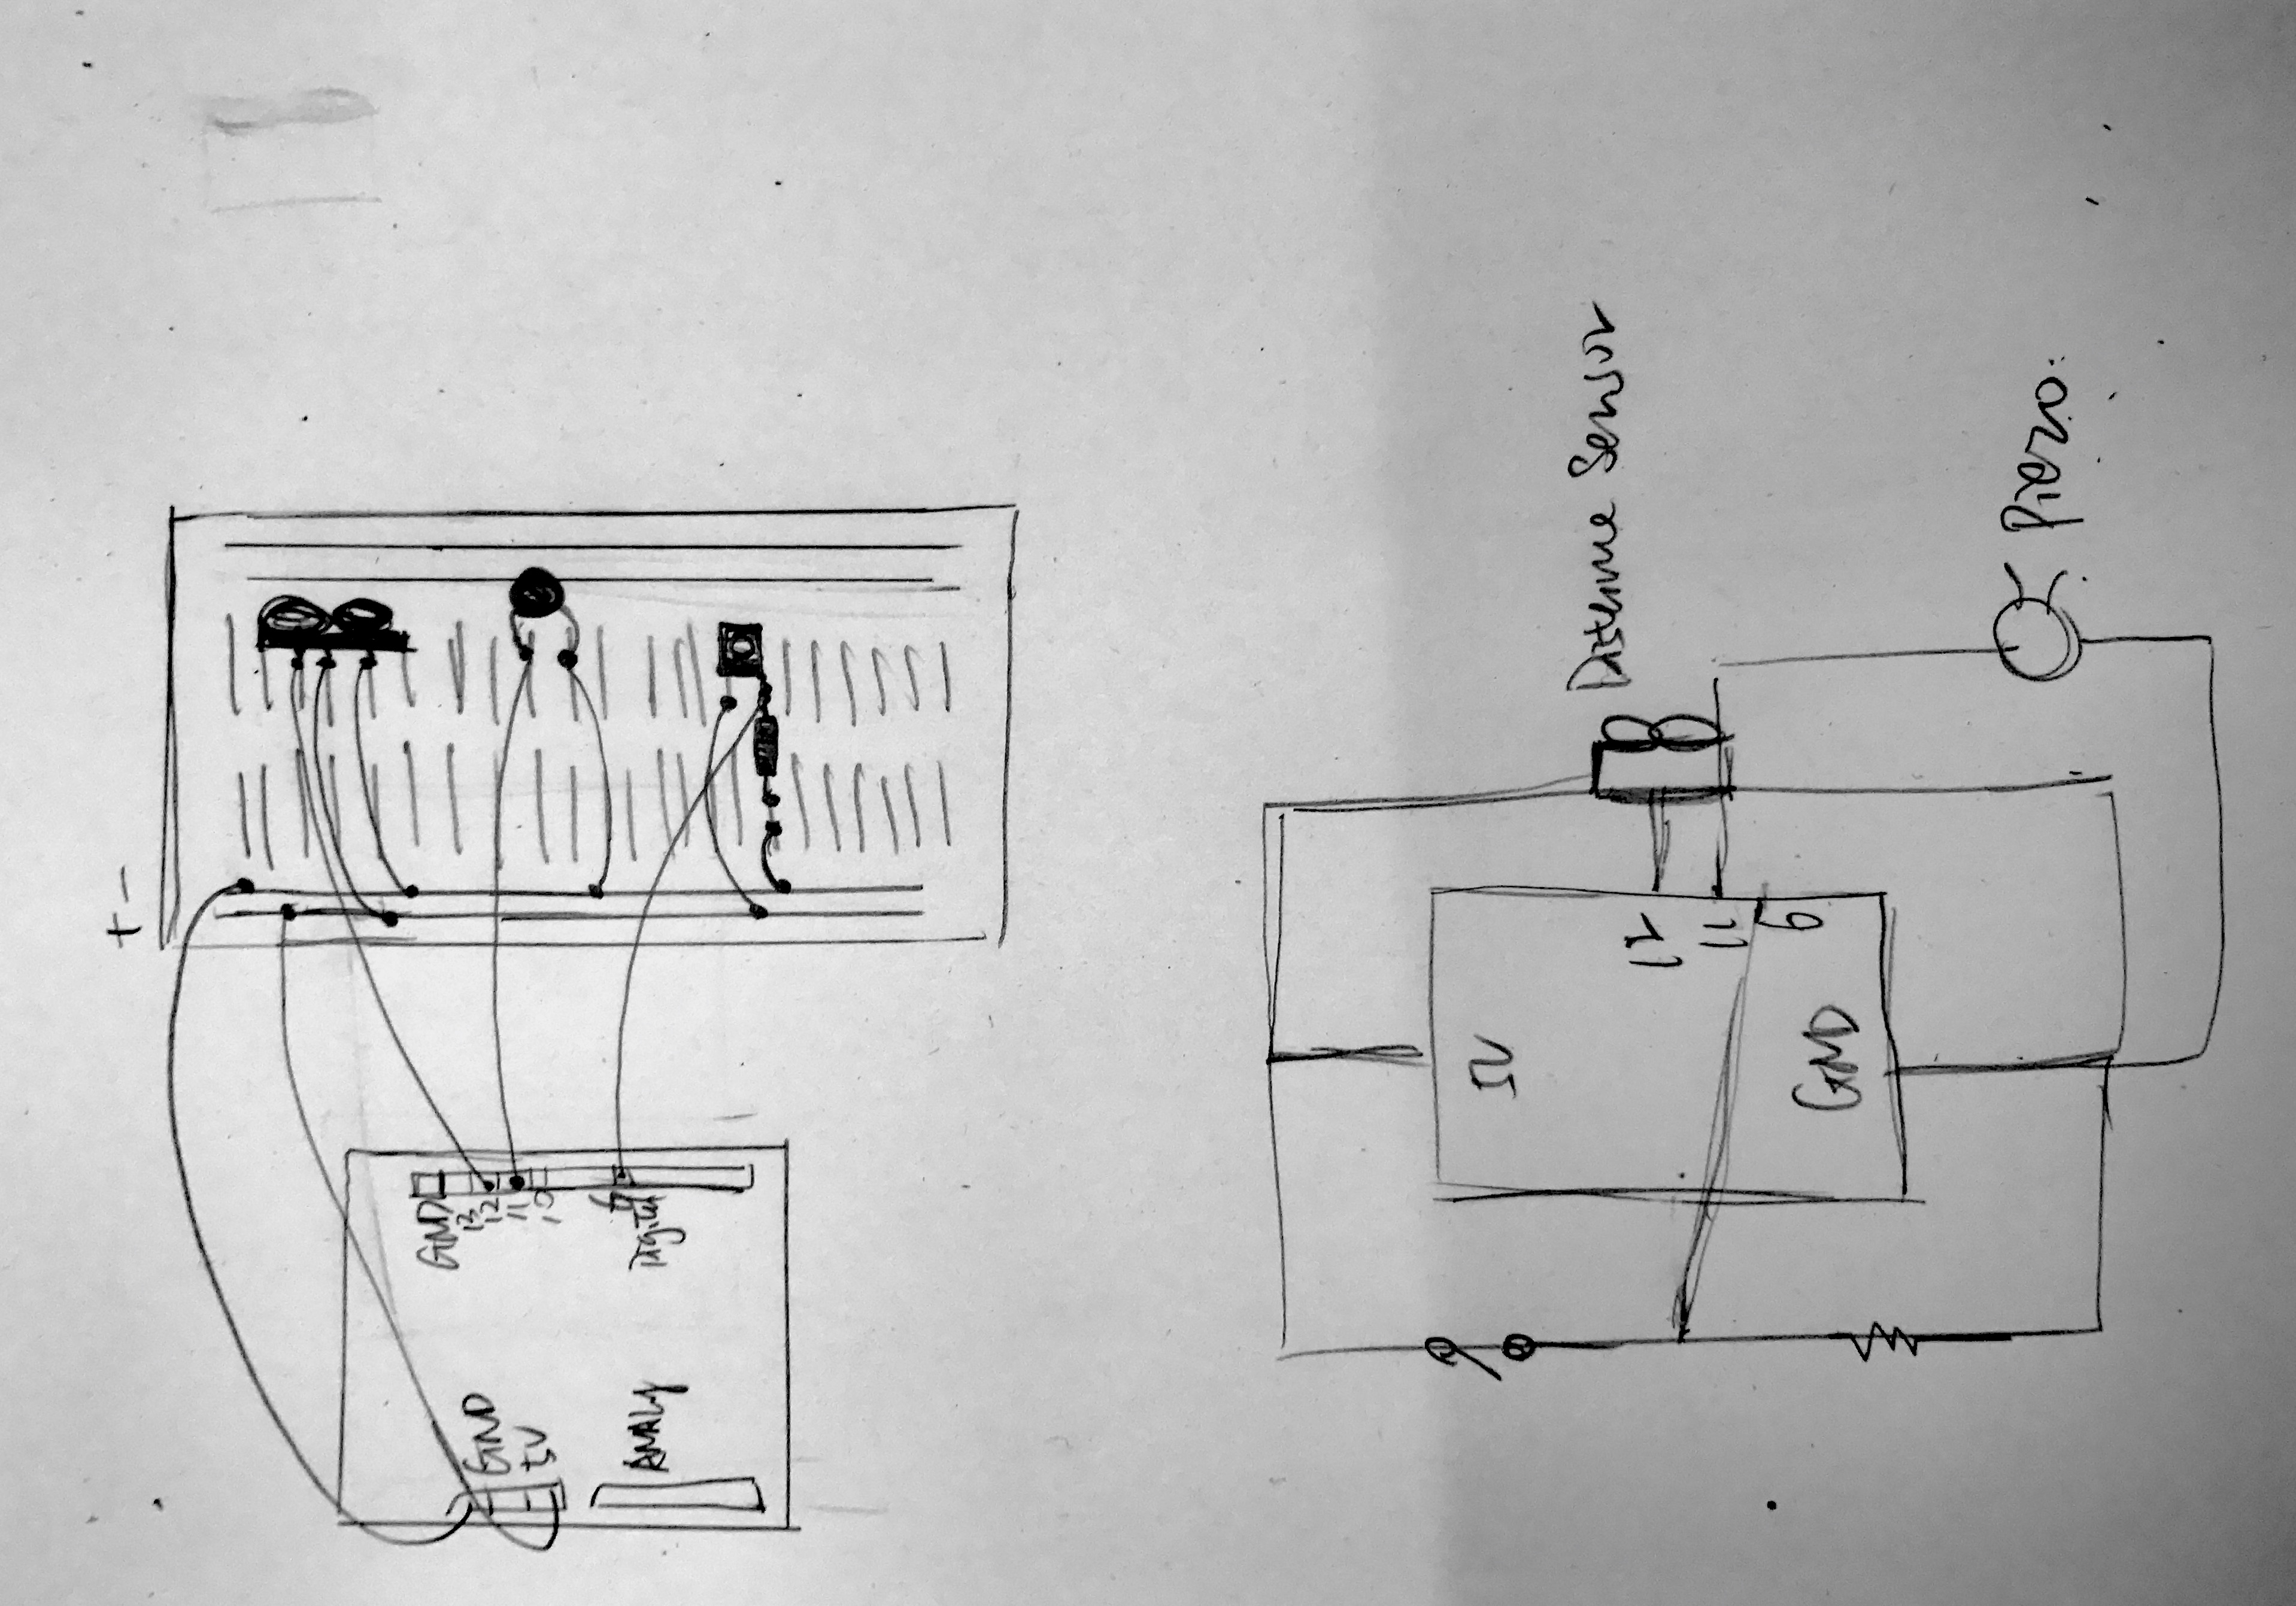 + -
GND
13
12
11
10
Digital
GND
5V
Distanne Sensor
Piezo
12
11
5V
GND